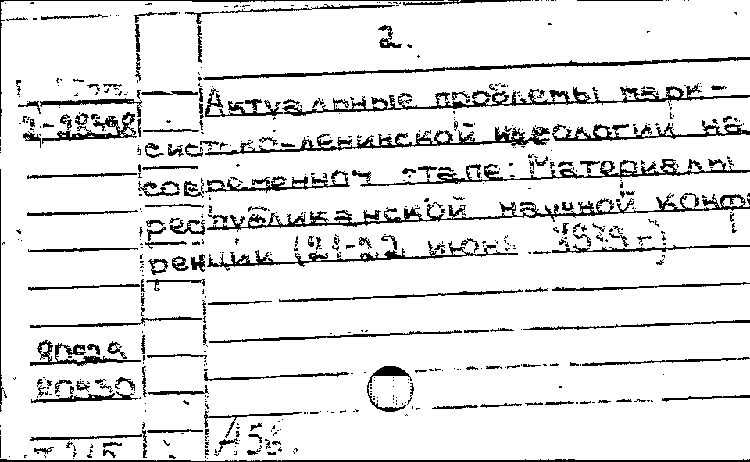 2.
Актуальные проблемы марк-
систско-ленинской идеологии на
современном этапе: Материалы
республиканской научной конф
ренции (21-22 июня 1979 г.)
80829
80830
А56.